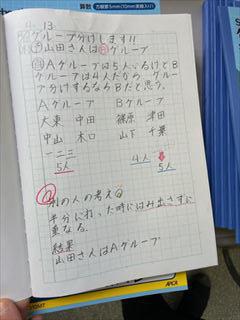 算数
方眼罫5mm(10mm実線入り)
4.13
グループ分けします!!
予 山田さんは Bグループ
Aグループは5人いるけどB
グループは4人だから、グルー
プ分けするならBだと思う。
Aグループ Bグループ
大東 中田 篠原 津田
中山 木口 山下 千葉
一二三
5人 4人 5人
別の人の考え
半分に折った時にはみ出さずに
重なる。
結果
山田さんはAグループ
APICA